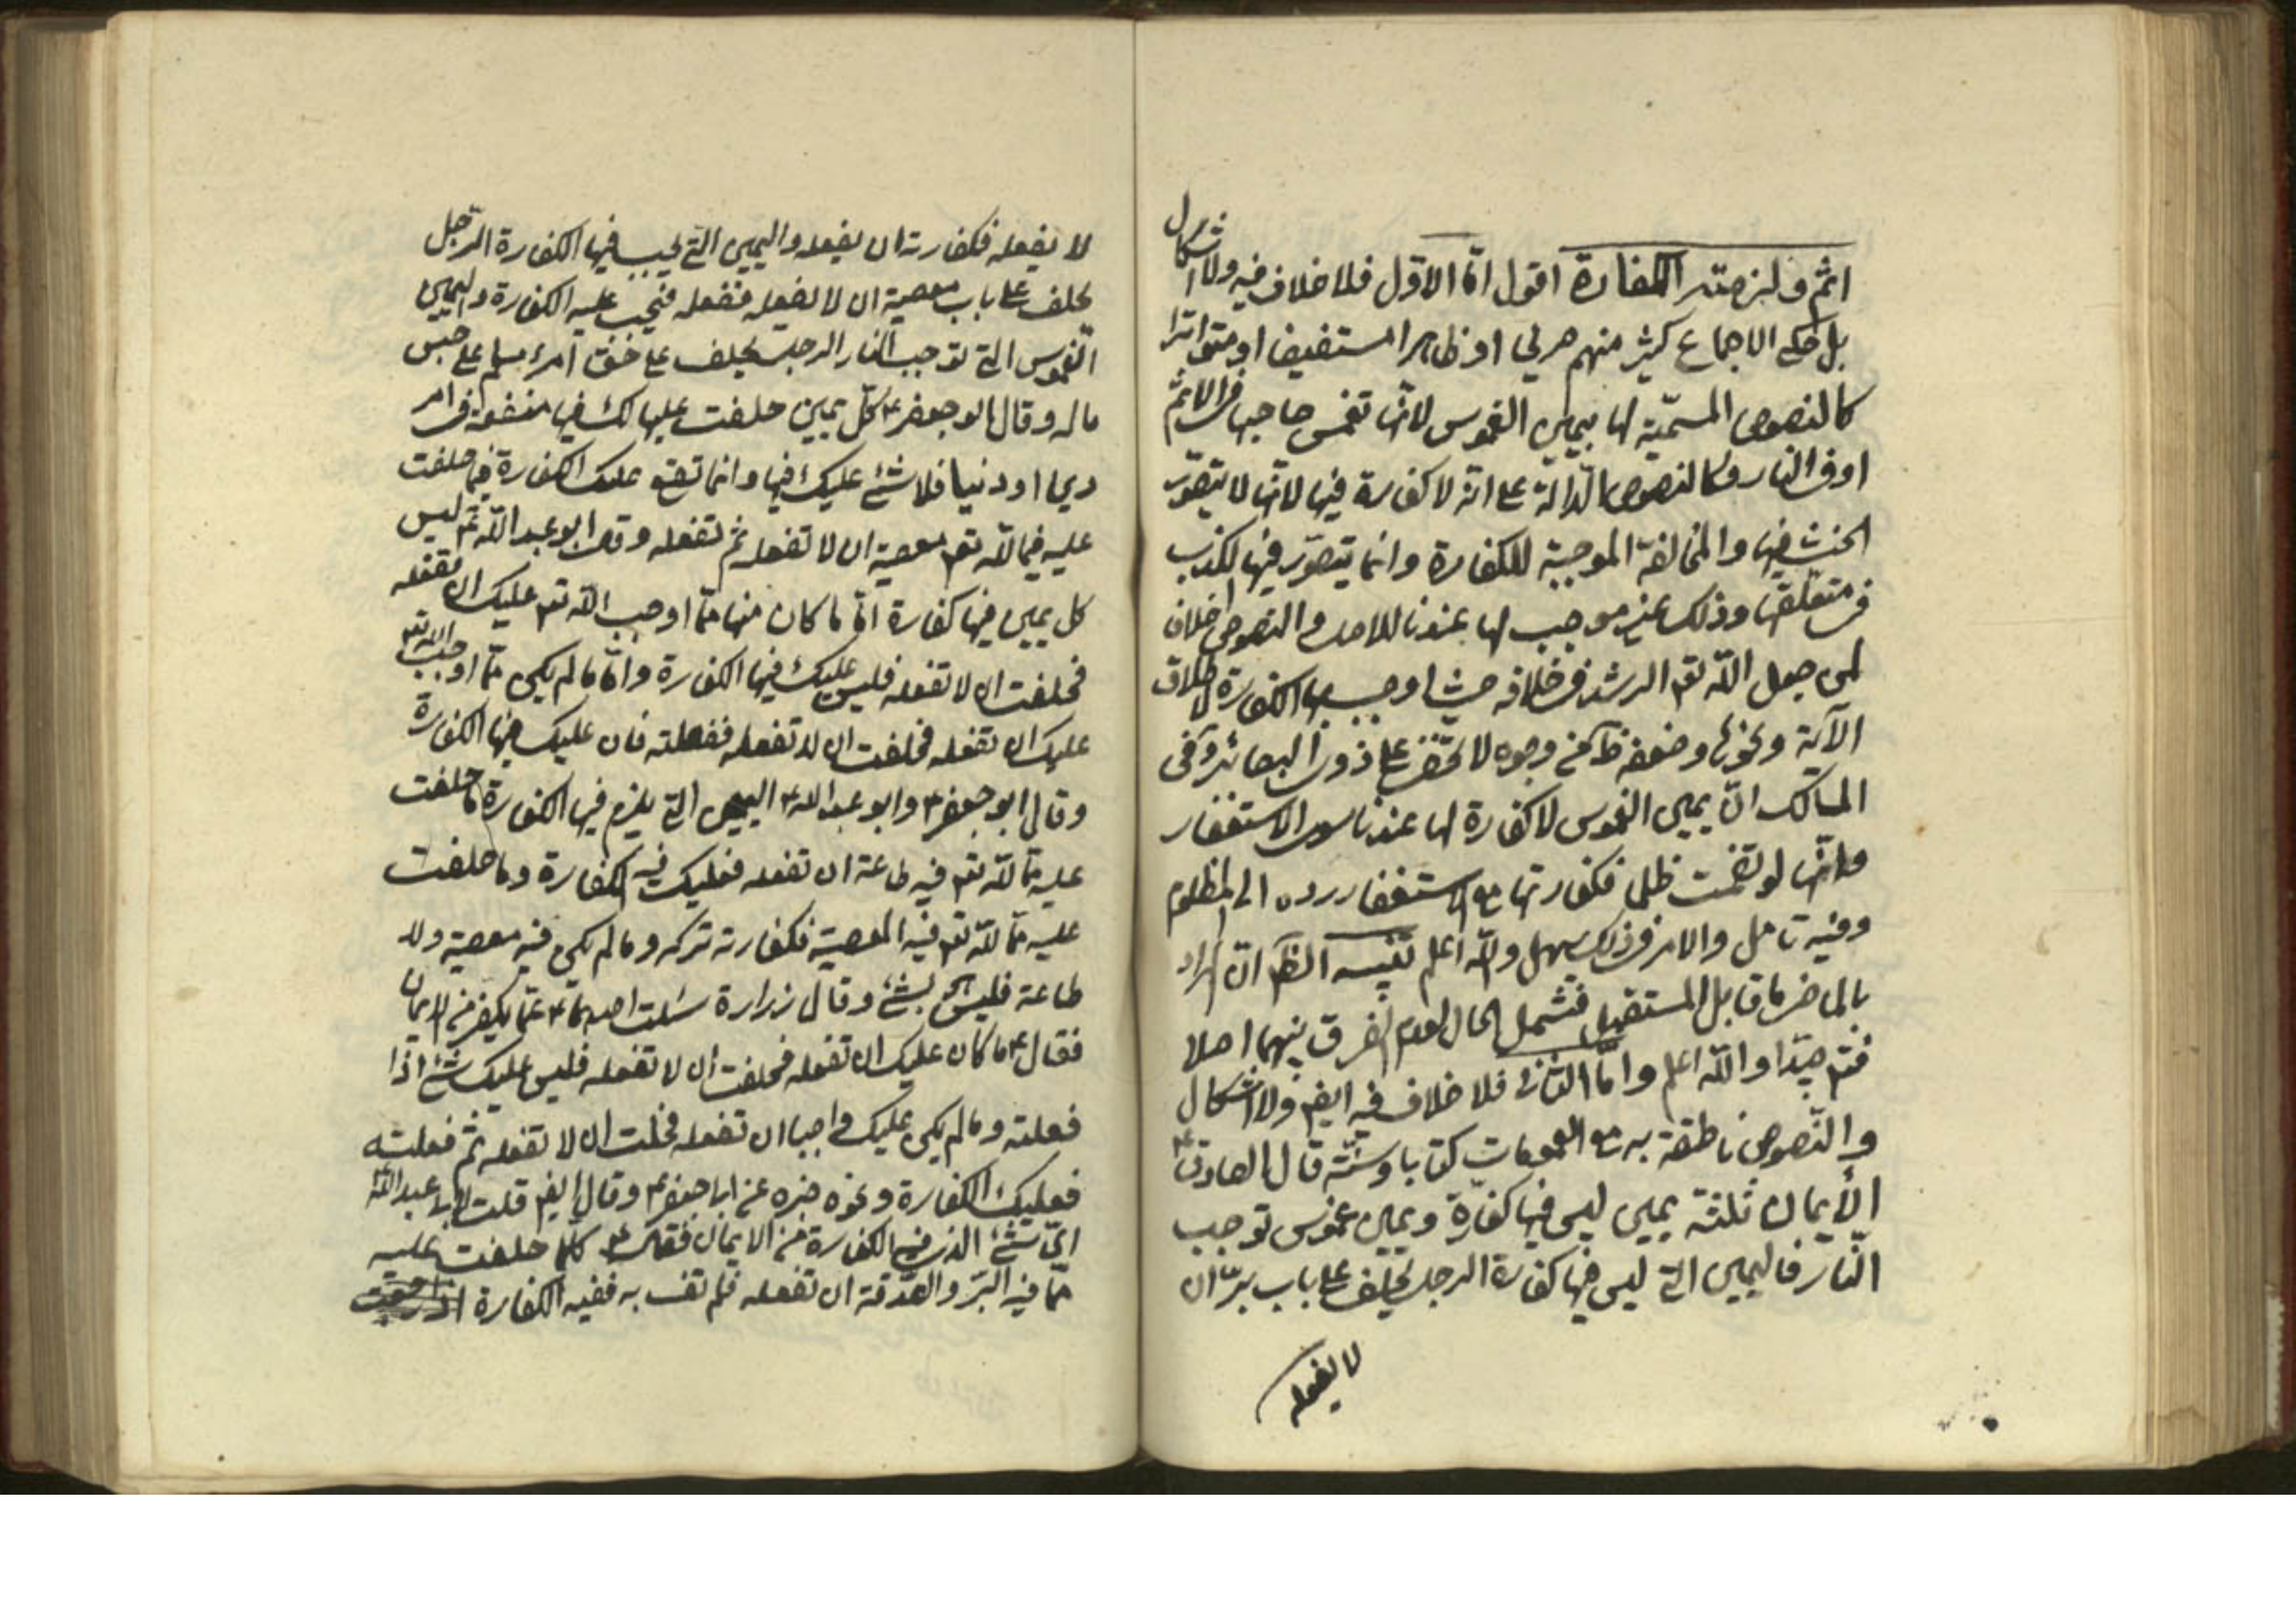 اثم ولزمته الكفارة اقول امّا الاوّل فلا خلاف فيه ولا اشكال
بل حكى الاجماع كثير منهم صريحا او ظاهرا مستفيضا او متواترا
كالنصوص المسمّية لها بيمين الغموس لانّها تغمس صاحبها فى الاثم
او فى النار وكالنصوص الدّالة على انّه لا كفارة فيها لانّها لا يتصوّر
الحنث فيها والمخالفة الموجبة للكفارة وانما يتصوّر فيها الكذب
فى متعلقها وذلك غير موجب لها عندنا للاصل والنصوص خلافا
لمن جعل الله تعم الرشد فى خلافه حيث اوجب بها الكفارة لاطلاق
الآية ونحوها وضعفه ظ من وجوه لا تخفى على ذوى البصائر وفى
المسالك انّ يمين الغموس لا كفارة لها عندنا سوى الاستغفار
وانّها لو تضمنت ظلما فكفارتها مع الاستغفار رده الى المظلوم
وفيه تامل والامر فى ذلك سهل والله اعلم تنبيه الظم انّ المراد
بالماضى ما قابل المستقبل فتشمل الحال لعدم الفرق بينهما اصلا
فتم جيّدا والله اعلم وامّا الثانى فلا خلاف فيه ايضم ولا اشكال
والنّصوص ناطقة به مع العمومات كتابا وسنّة قال الصادق ع
الأيمان ثلثة يمين ليس فيها كفّارة ويمين غموس توجب
النّار فاليمين التى ليس فيها كفارة الرجل يحلف على باب برّ ان
لا يفعله
لا يفعله فكفارته ان يفعله واليمين التى يجب فيها الكفارة الرّجل
يحلف على باب معصية ان لا يفعله فيفعله فيجب عليه الكفارة واليمين
الغموس التى توجب النار الرجل يحلف على حق امرء مسلم على حبس
ماله وقال ابو جعفر ع كلّ يمين حلفت عليها لك فيها منفعة فى امر
دين او دنيا فلا شئ عليك فيها وانما تقع عليك الكفارة فيما حلفت
عليه فيما لله تعم معصية ان لا تفعله ثم تفعله وقال ابو عبد الله ع ليس
كل يمين فيها كفارة امّا ما كان منها ممّا اوجب الله تعم عليك ان تفعله
فحلفت ان لا تفعله فليس عليك فيها الكفارة وامّا ما لم يكن ممّا اوجب الله تعم
عليك ان تفعله فحلفت ان لا تفعله ففعلته فان عليك فيها الكفارة
وقال ابو جعفر ع وابو عبد الله ع اليمين التى يلزم فيها الكفارة ما حلفت
عليه ممّا لله تعم فيه طاعة ان تفعله فعليك فيه الكفارة وما حلفت
عليه ممّا لله تعم فيه المعصية فكفارته تركه وما لم يكن فيه معصية ولا
طاعة فليس بشئ وقال زرارة سئلت احدهما ع عمّا يكفر من الايمان
فقال ع ما كان عليك ان تفعله فحلفت ان لا تفعله فليس عليك شئ اذا
فعلته وما لم يكن عليك واجبا ان تفعله فحلفت ان لا تفعله ثم فعلته
فعليك الكفارة ونحوه خبره عن ابا جعفر ع وقال ايضم قلت لابى عبد الله ع
اىّ شئ الذى فيه الكفارة من الايمان فقال ع كلّما حلفت عليه
ممّا فيه البرّ والصّدقة ان تفعله فلم تف به ففيه الكفارة